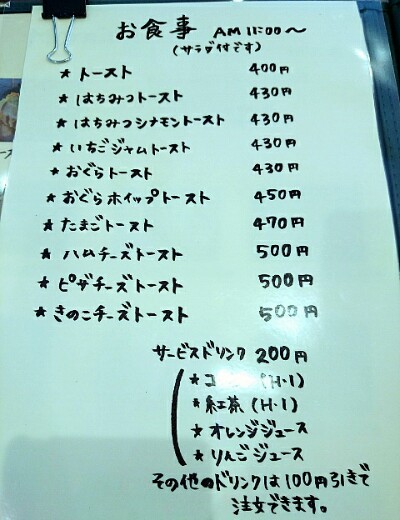 お食事 AM 11:00〜
(サラダ付です)
★ トースト 400円
★ はちみつトースト 430円
★ はちみつシナモントースト 430円
★ いちごジャムトースト 430円
★ おぐらトースト 430円
★ おぐらホイップトースト 450円
★ たまごトースト 470円
★ ハムチーズトースト 500円
★ ピザチーズトースト 500円
★ きのこチーズトースト 500円
サービスドリンク 200円
★ (H・I)
★ 紅茶 (H・I)
★ オレンジジュース
★ りんごジュース
その他のドリンクは100円引きで
注文できます。